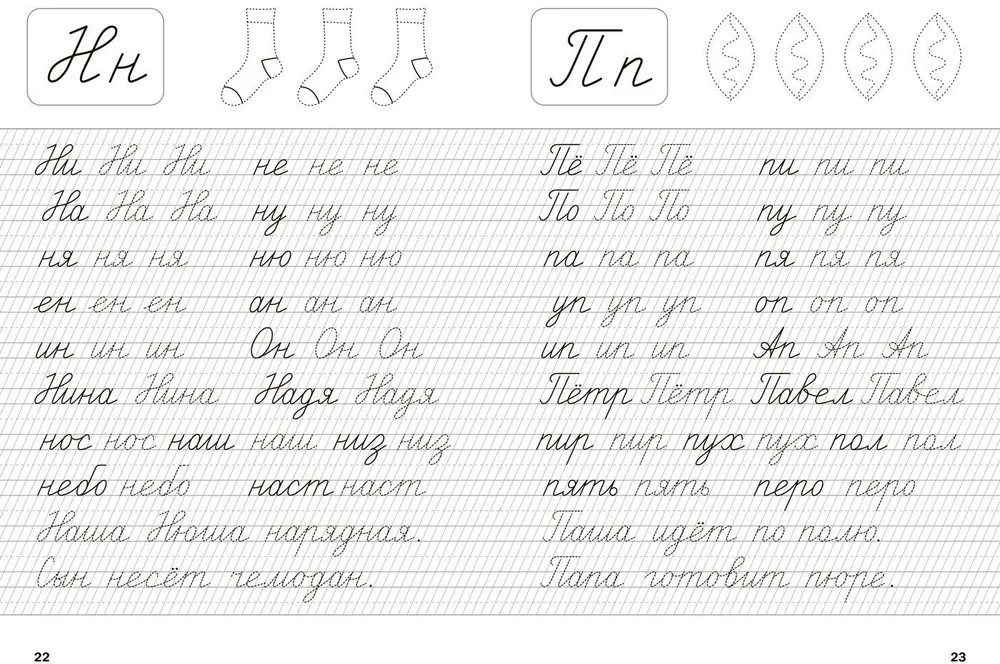 Нн
Ни Ни Ни не не не
На На На ну ну ну
ня ня ня ню ню ню
ен ен ен ан ан ан
ин ин ин Он Он Он
Нина Нина Надя Надя
нос нос наш наш низ низ
небо небо наст наст
Наша Нюша нарядная.
Сын несёт чемодан.
22
Пп
Пё Пё Пё пи пи пи
По По По пу пу пу
па па па пя пя пя
уп уп уп оп оп оп
ип ип ип Ап Ап Ап
Пётр Пётр Павел Павел
пир пир пух пух пол пол
пять пять перо перо
Паша идёт по полю.
Папа готовит пюре.
23